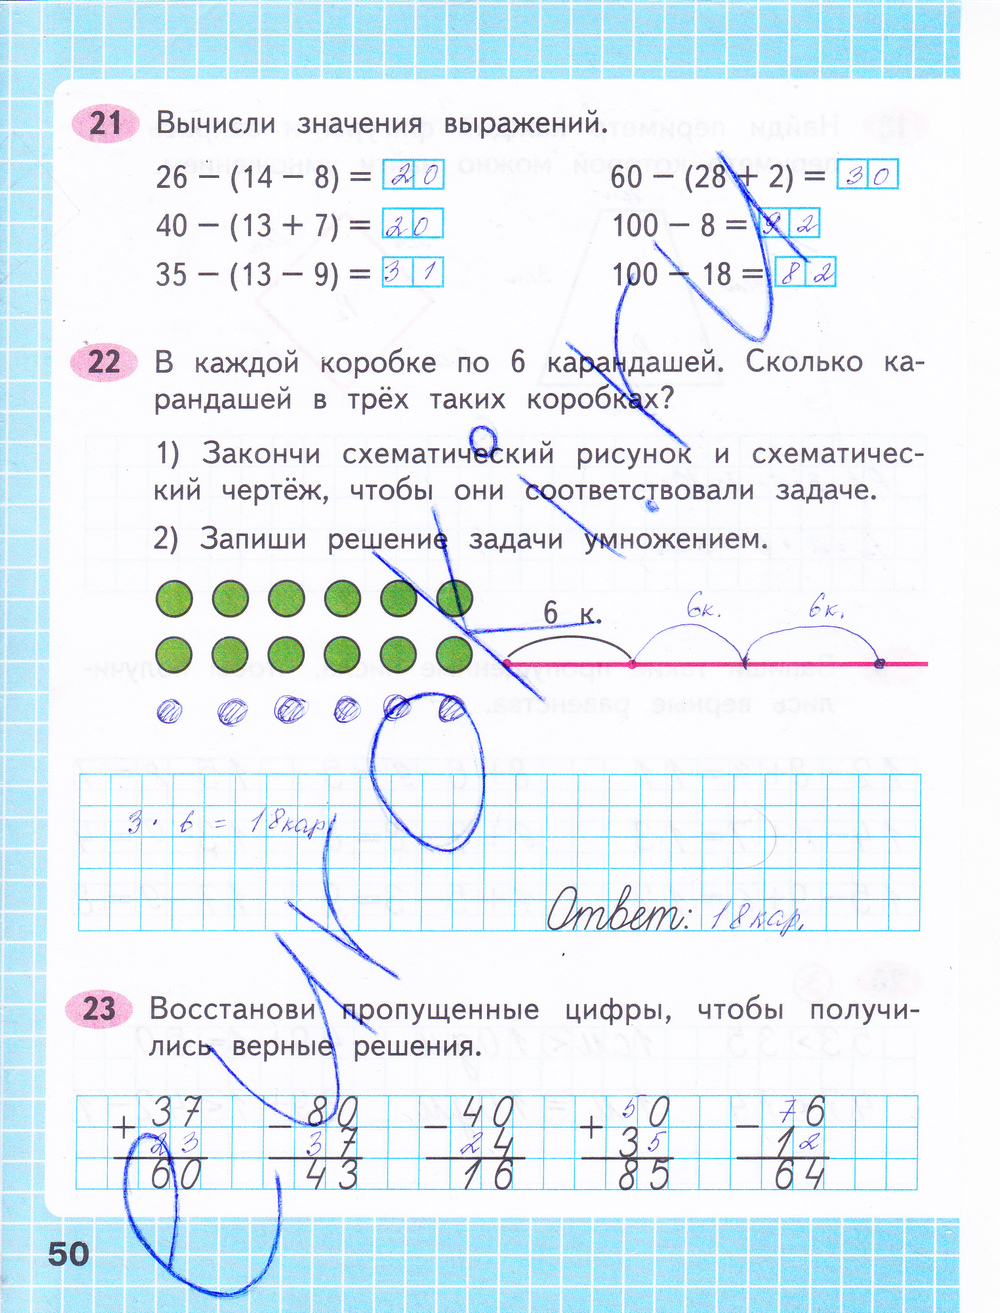 21 Вычисли значения выражений.
26 − (14 − 8) = 20 60 − (28 + 2) = 30
40 − (13 + 7) = 20 100 − 8 = 92
35 − (13 − 9) = 31 100 − 18 = 82
22 В каждой коробке по 6 карандашей. Сколько ка-
рандашей в трёх таких коробках?
1) Закончи схематический рисунок и схематичес-
кий чертёж, чтобы они соответствовали задаче.
2) Запиши решение задачи умножением.
6 к. 6к. 6к.
3 · 6 = 18кар.
Ответ: 18кар.
23 Восстанови пропущенные цифры, чтобы получи-
лись верные решения.
+ 37 − 80 − 40 + 50 − 76
23 37 24 35 12
60 43 16 85 64
50